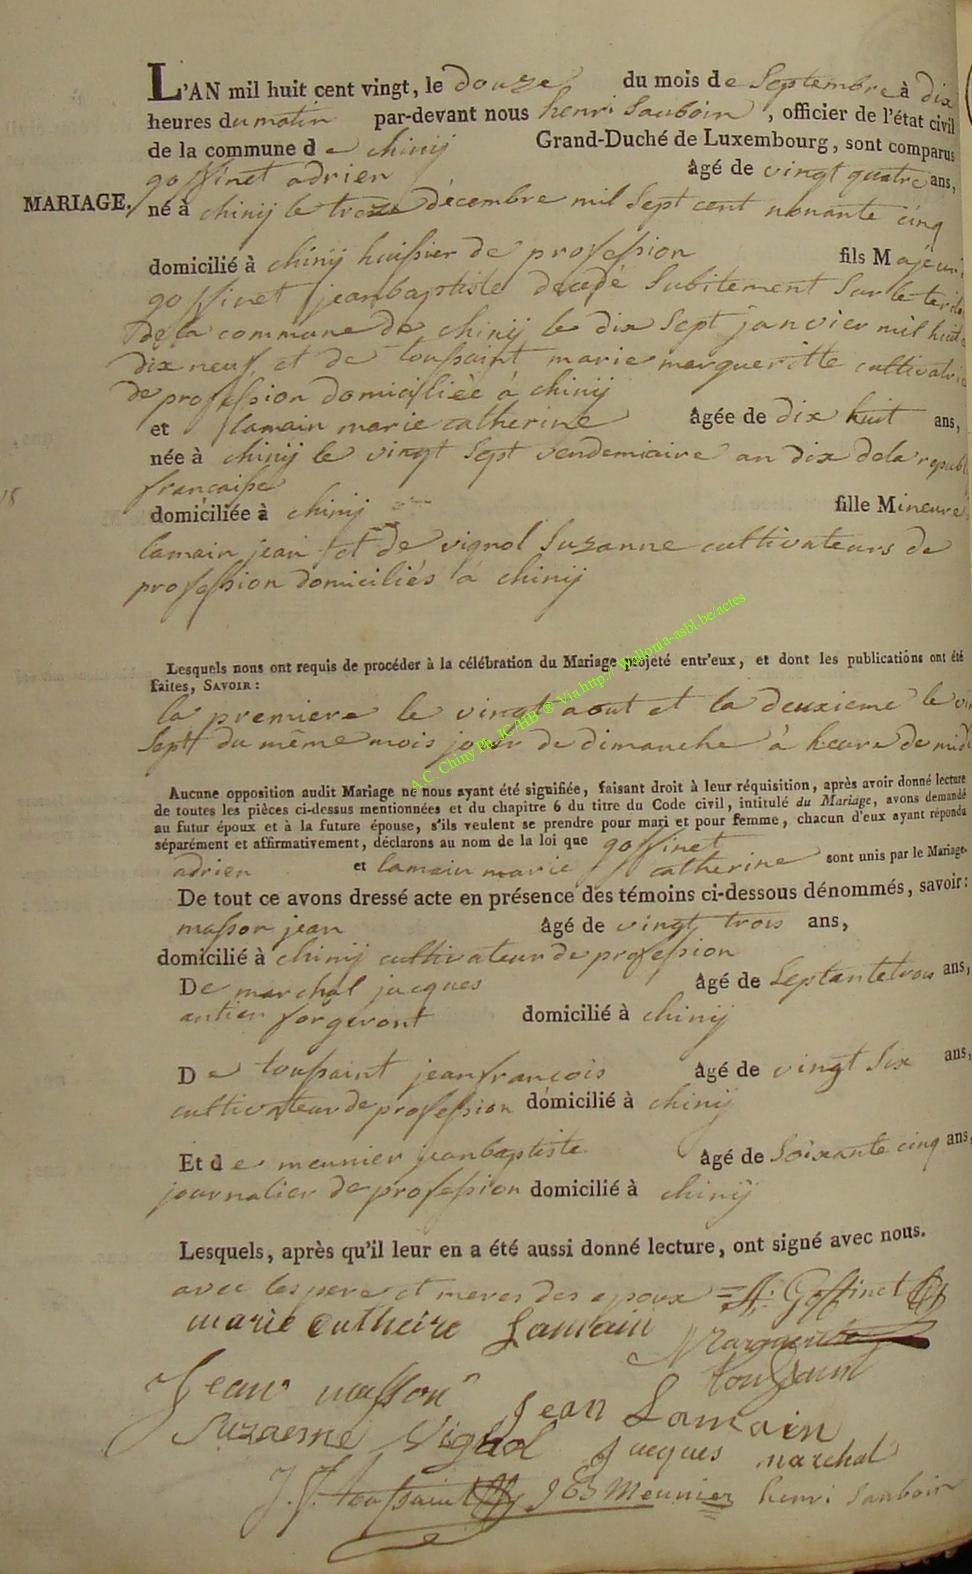 L'AN mil huit cent vingt, le douze du mois de Septembre à dix
heures du matin par-devant nous henri Sauboin, officier de l'état civil
de la commune de chinij Grand-Duché de Luxembourg, sont comparus
goffinet adrien âgé de vingt quatre ans,
MARIAGE. né à chinij le treze décembre mil Sept cent nonante cinq
domicilié à chinij huissier de profession fils Majeur
goffinet jeanbaptiste décédé Subitement Sur le
De la commune de chinij le dix Sept janvier mil huit
dix neuf et de toussaint marie margueritte
de profession domiciliée à chinij
et lamain marie catherine âgée de dix huit ans,
née à chinij le vingt Sept vendemiaire an dix dela
françaisse
domiciliée à chinij fille Mineure
lamain jean et de vignol Suzanne cultivateurs de
profession domiciliés à chinij
Lesquels nous ont requis de procéder à la célébration du Mariage projeté entr'eux, et dont les publications ont été
faites, SAVOIR:
la premiere le vingt aout et la deuxieme le
Sept du même mois jour de dimanche à heure de midi
Aucune opposition audit Mariage ne nous ayant été signifiée, faisant droit à leur réquisition, après avoir donné lecture
de toutes les pièces ci-dessus mentionnées et du chapitre 6 du titre du Code civil, intitulé du Mariage, avons demandé
au futur époux et à la future épouse, s'ils veulent se prendre pour mari et pour femme, chacun d'eux ayant répondu
séparément et affirmativement, déclarons au nom de la loi que goffinet
adrien et lamain marie catherine sont unis par le Mariage.
De tout ce avons dressé acte en présence des témoins ci-dessous dénommés, savoir:
masson jean âgé de vingt trois ans,
domicilié à chinij cultivateur de profession
De marchal jacques âgé de Septantetrois ans,
antien forgeront domicilié à chinij
De toussaint jeanfrancois âgé de vingt Six ans,
cultivateur de profession domicilié à chinij
Et de meunier jeanbaptiste âgé de Soixante cinq ans,
journalier de profession domicilié à chinij
Lesquels, après qu'il leur en a été aussi donné lecture, ont signé avec nous.
avec les pere et meres des epoux = A: Goffinet
marie catheire Lamain Marguerite
toussaint
Jean masson Jean Lamain
Suzaenne Vignol Jacques marchal
J. f. toussaint J B Meunier henri Sauboin
A.C. Chiny Ph. JC/HB ® Via http://Wallonia-asbl.be/actes